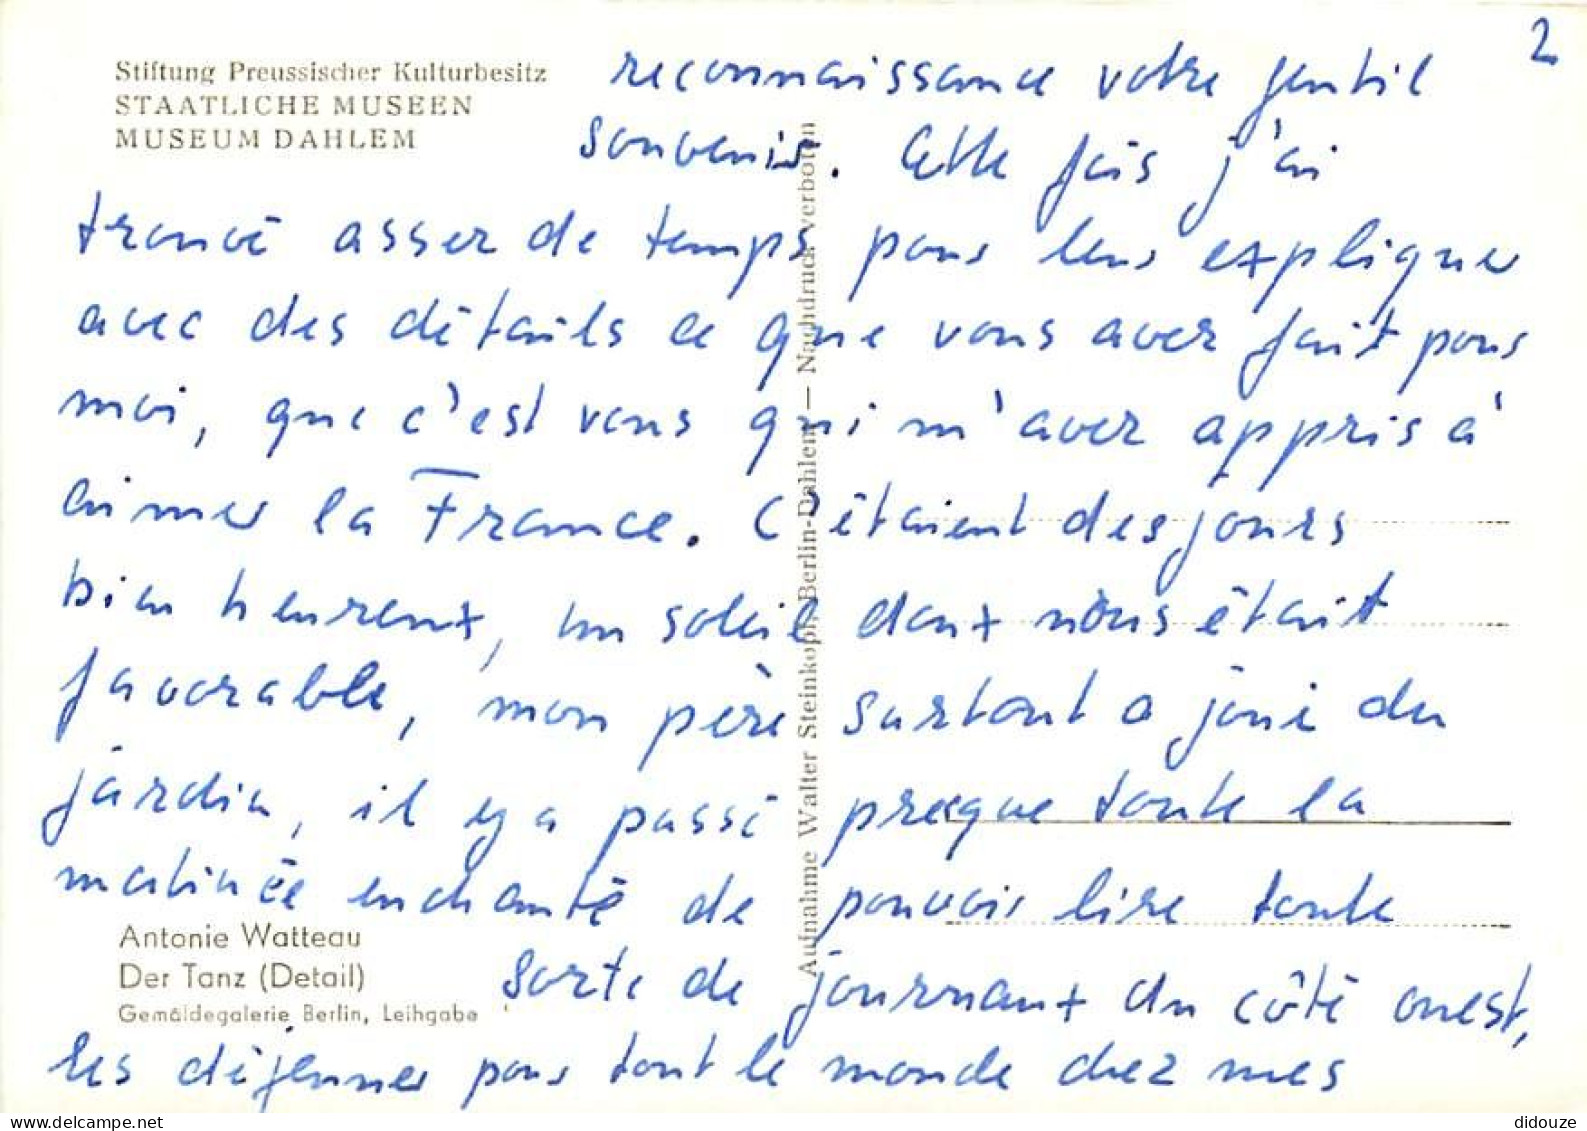 2
Stiftung Preussischer Kulturbesitz
STAATLICHE MUSEEN
MUSEUM DAHLEM
reconnaissance votre gentil
souvenir. Cette fois j'ai
trouvé asser de temps pour leur expliquer
avec des détails ce que vous aver fait pour
moi, que c'est vous qui m'aver appris à
aimer la France. C'étaient des jours
bien heureux, un soleil doux nous était
favorable, mon père surtout a joui du
jardin, il y a passé presque toute la
matinée enchanté de pouvoir lire toute
sorte de journaux du côté ouest,
les déjeuner pour tout le monde chez mes
Antonie Watteau
Der Tanz (Detail)
Gemäldegalerie Berlin, Leihgabe
Aufnahme Walter Steinkopf, Berlin-Dahlem — Nachdruck verboten
didouze